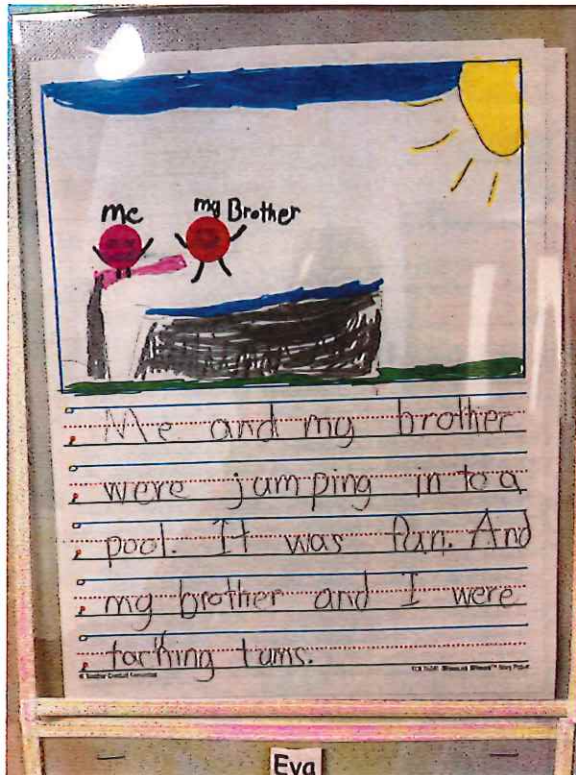 me
my Brother
Me and my brother
were jumping in to a
pool. It was fun. And
my brother and I were
tarking turns.
Eva